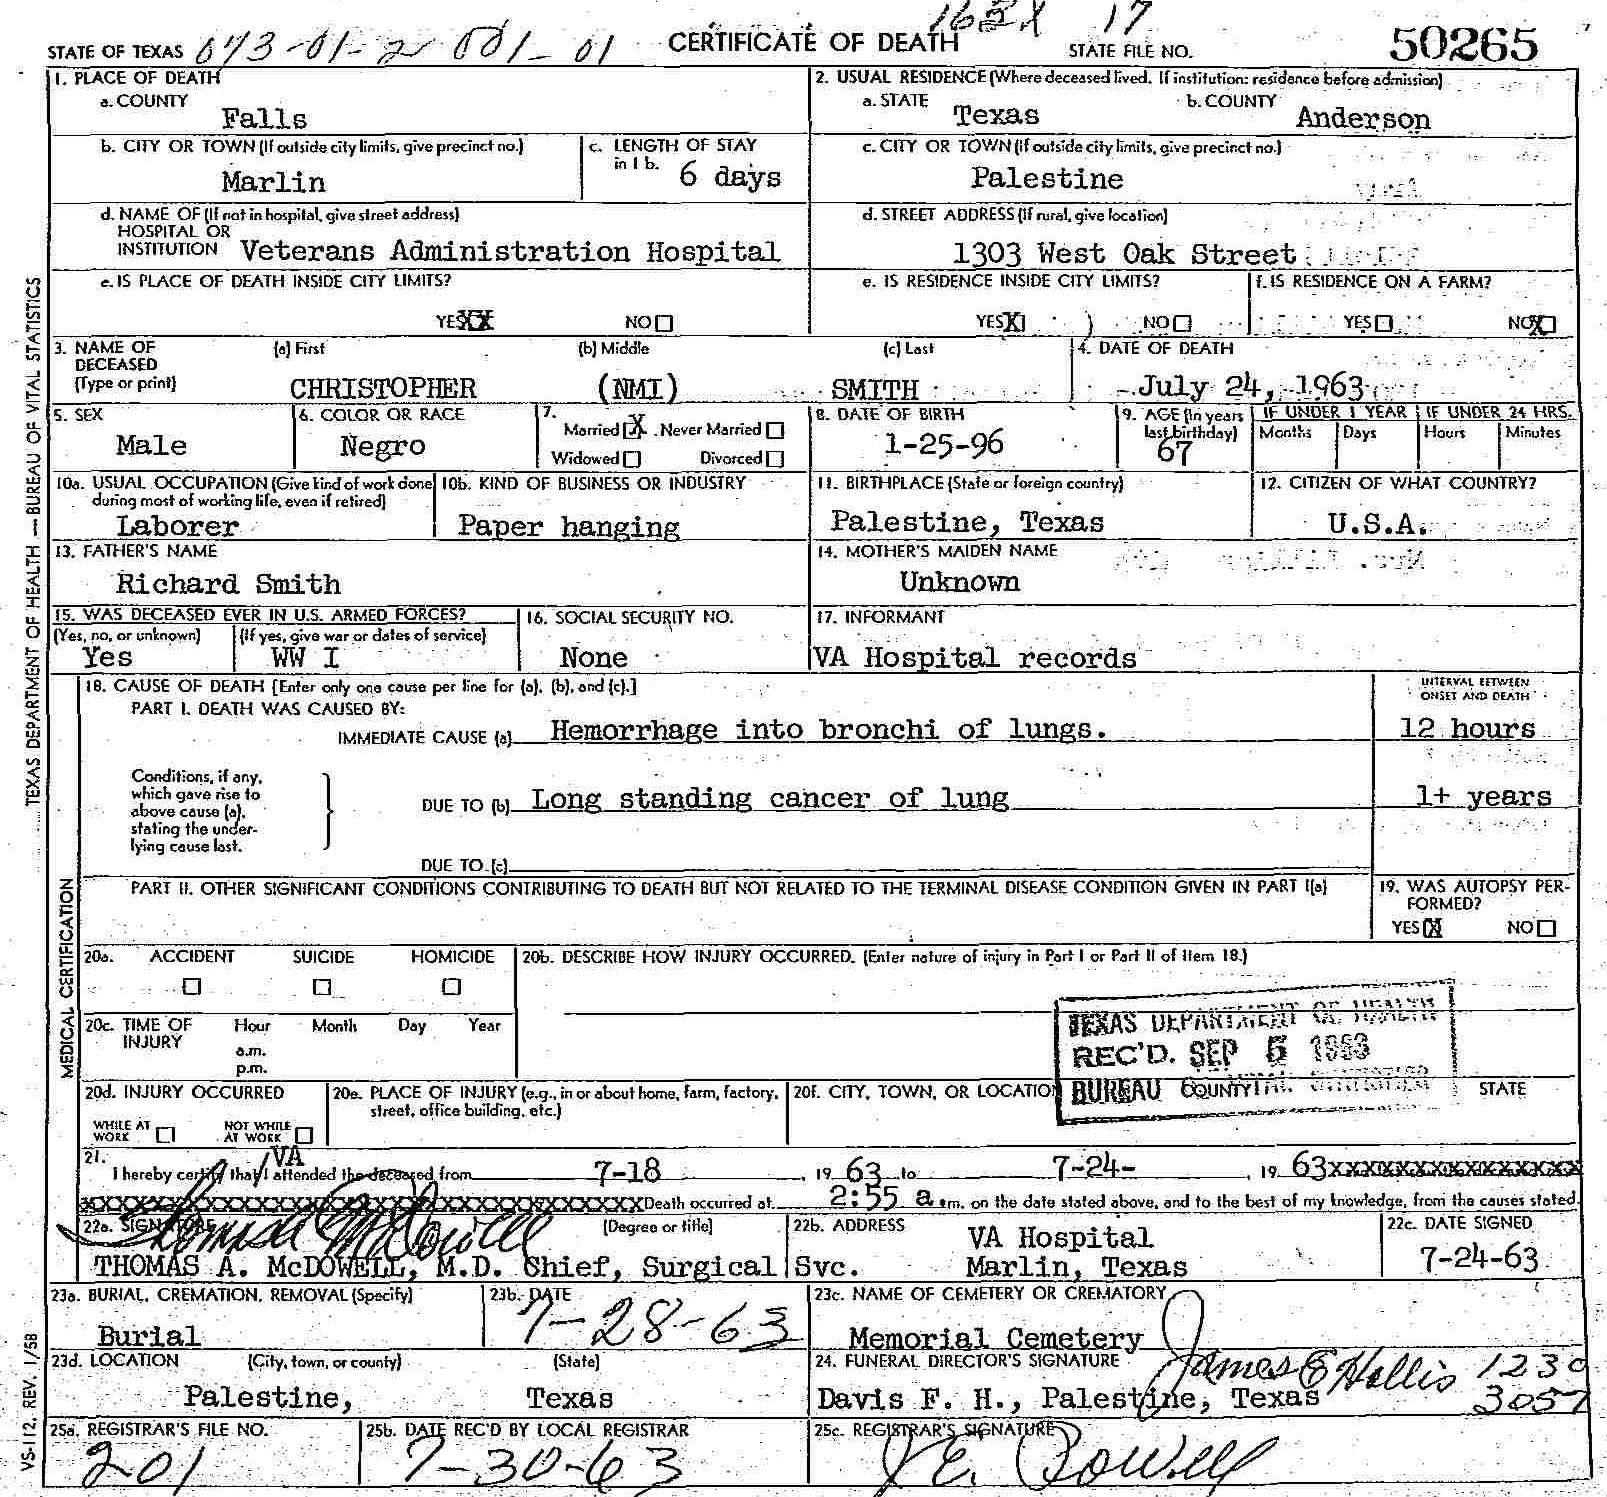 STATE OF TEXAS 073-01-2 001-01 CERTIFICATE OF DEATH 162X 17 STATE FILE NO. 50265
1. PLACE OF DEATH
a. COUNTY
Falls
2. USUAL RESIDENCE (Where deceased lived. If institution: residence before admission)
a. STATE Texas b. COUNTY Anderson
b. CITY OR TOWN (If outside city limits, give precinct no.)
Marlin
c. LENGTH OF STAY in 1 b.
6 days
c. CITY OR TOWN (If outside city limits, give precinct no.)
Palestine
d. NAME OF (If not in hospital, give street address)
HOSPITAL OR
INSTITUTION Veterans Administration Hospital
d. STREET ADDRESS (If rural, give location)
1303 West Oak Street
e. IS PLACE OF DEATH INSIDE CITY LIMITS?
YES XX NO
e. IS RESIDENCE INSIDE CITY LIMITS?
YES X NO
f. IS RESIDENCE ON A FARM?
YES NO X
3. NAME OF DECEASED (Type or print)
(a) First (b) Middle (c) Last
CHRISTOPHER (NMI) SMITH
4. DATE OF DEATH
July 24, 1963
5. SEX
Male
6. COLOR OR RACE
Negro
7.
Married X Never Married
Widowed Divorced
8. DATE OF BIRTH
1-25-96
9. AGE (In years last birthday)
67
IF UNDER 1 YEAR IF UNDER 24 HRS.
Months Days Hours Minutes
10a. USUAL OCCUPATION (Give kind of work done during most of working life, even if retired)
Laborer
10b. KIND OF BUSINESS OR INDUSTRY
Paper hanging
11. BIRTHPLACE (State or foreign country)
Palestine, Texas
12. CITIZEN OF WHAT COUNTRY?
U.S.A.
13. FATHER'S NAME
Richard Smith
14. MOTHER'S MAIDEN NAME
Unknown
15. WAS DECEASED EVER IN U.S. ARMED FORCES?
(Yes, no, or unknown) (If yes, give war or dates of service)
Yes WW I
16. SOCIAL SECURITY NO.
None
17. INFORMANT
VA Hospital records
18. CAUSE OF DEATH [Enter only one cause per line for (a), (b), and (c).]
INTERVAL BETWEEN ONSET AND DEATH
PART I. DEATH WAS CAUSED BY:
IMMEDIATE CAUSE (a) Hemorrhage into bronchi of lungs. 12 hours
Conditions, if any,
which gave rise to
above cause (a),
stating the under-
lying cause last.
DUE TO (b) Long standing cancer of lung 1+ years
DUE TO (c)
PART II. OTHER SIGNIFICANT CONDITIONS CONTRIBUTING TO DEATH BUT NOT RELATED TO THE TERMINAL DISEASE CONDITION GIVEN IN PART I(a)
19. WAS AUTOPSY PER-
FORMED?
YES X NO
20a. ACCIDENT SUICIDE HOMICIDE
20b. DESCRIBE HOW INJURY OCCURRED. (Enter nature of injury in Part I or Part II of Item 18.)
20c. TIME OF INJURY Hour Month Day Year
a.m.
p.m.
TEXAS DEPARTMENT OF HEALTH
REC'D. SEP 5 1963
BUREAU
20d. INJURY OCCURRED
WHILE AT WORK NOT WHILE AT WORK
20e. PLACE OF INJURY (e.g., in or about home, farm, factory, street, office building, etc.)
20f. CITY, TOWN, OR LOCATION COUNTY STATE
21. VA
I hereby certify that I attended the deceased from 7-18, 1963 to 7-24-, 1963 XXXXXXXXXXXXXXXXXX
XXXXXXXXXXXXXXXXXXXXXXXXXXXXXXXXXXXXXX Death occurred at 2:55 a.m. on the date stated above, and to the best of my knowledge, from the causes stated.
22a. SIGNATURE (Degree or title)
Thomas A McDowell
THOMAS A. McDOWELL, M.D. Chief, Surgical Svc.
22b. ADDRESS
VA Hospital
Marlin, Texas
22c. DATE SIGNED
7-24-63
23a. BURIAL, CREMATION, REMOVAL (Specify)
Burial
23b. DATE
7-28-63
23c. NAME OF CEMETERY OR CREMATORY
Memorial Cemetery
23d. LOCATION (City, town, or county) (State)
Palestine, Texas
24. FUNERAL DIRECTOR'S SIGNATURE
James E Hollis 1230
Davis F. H., Palestine, Texas 3057
25a. REGISTRAR'S FILE NO.
201
25b. DATE REC'D BY LOCAL REGISTRAR
7-30-63
25c. REGISTRAR'S SIGNATURE
J E. Powell
TEXAS DEPARTMENT OF HEALTH — BUREAU OF VITAL STATISTICS
MEDICAL CERTIFICATION
VS-112, REV. 1/58